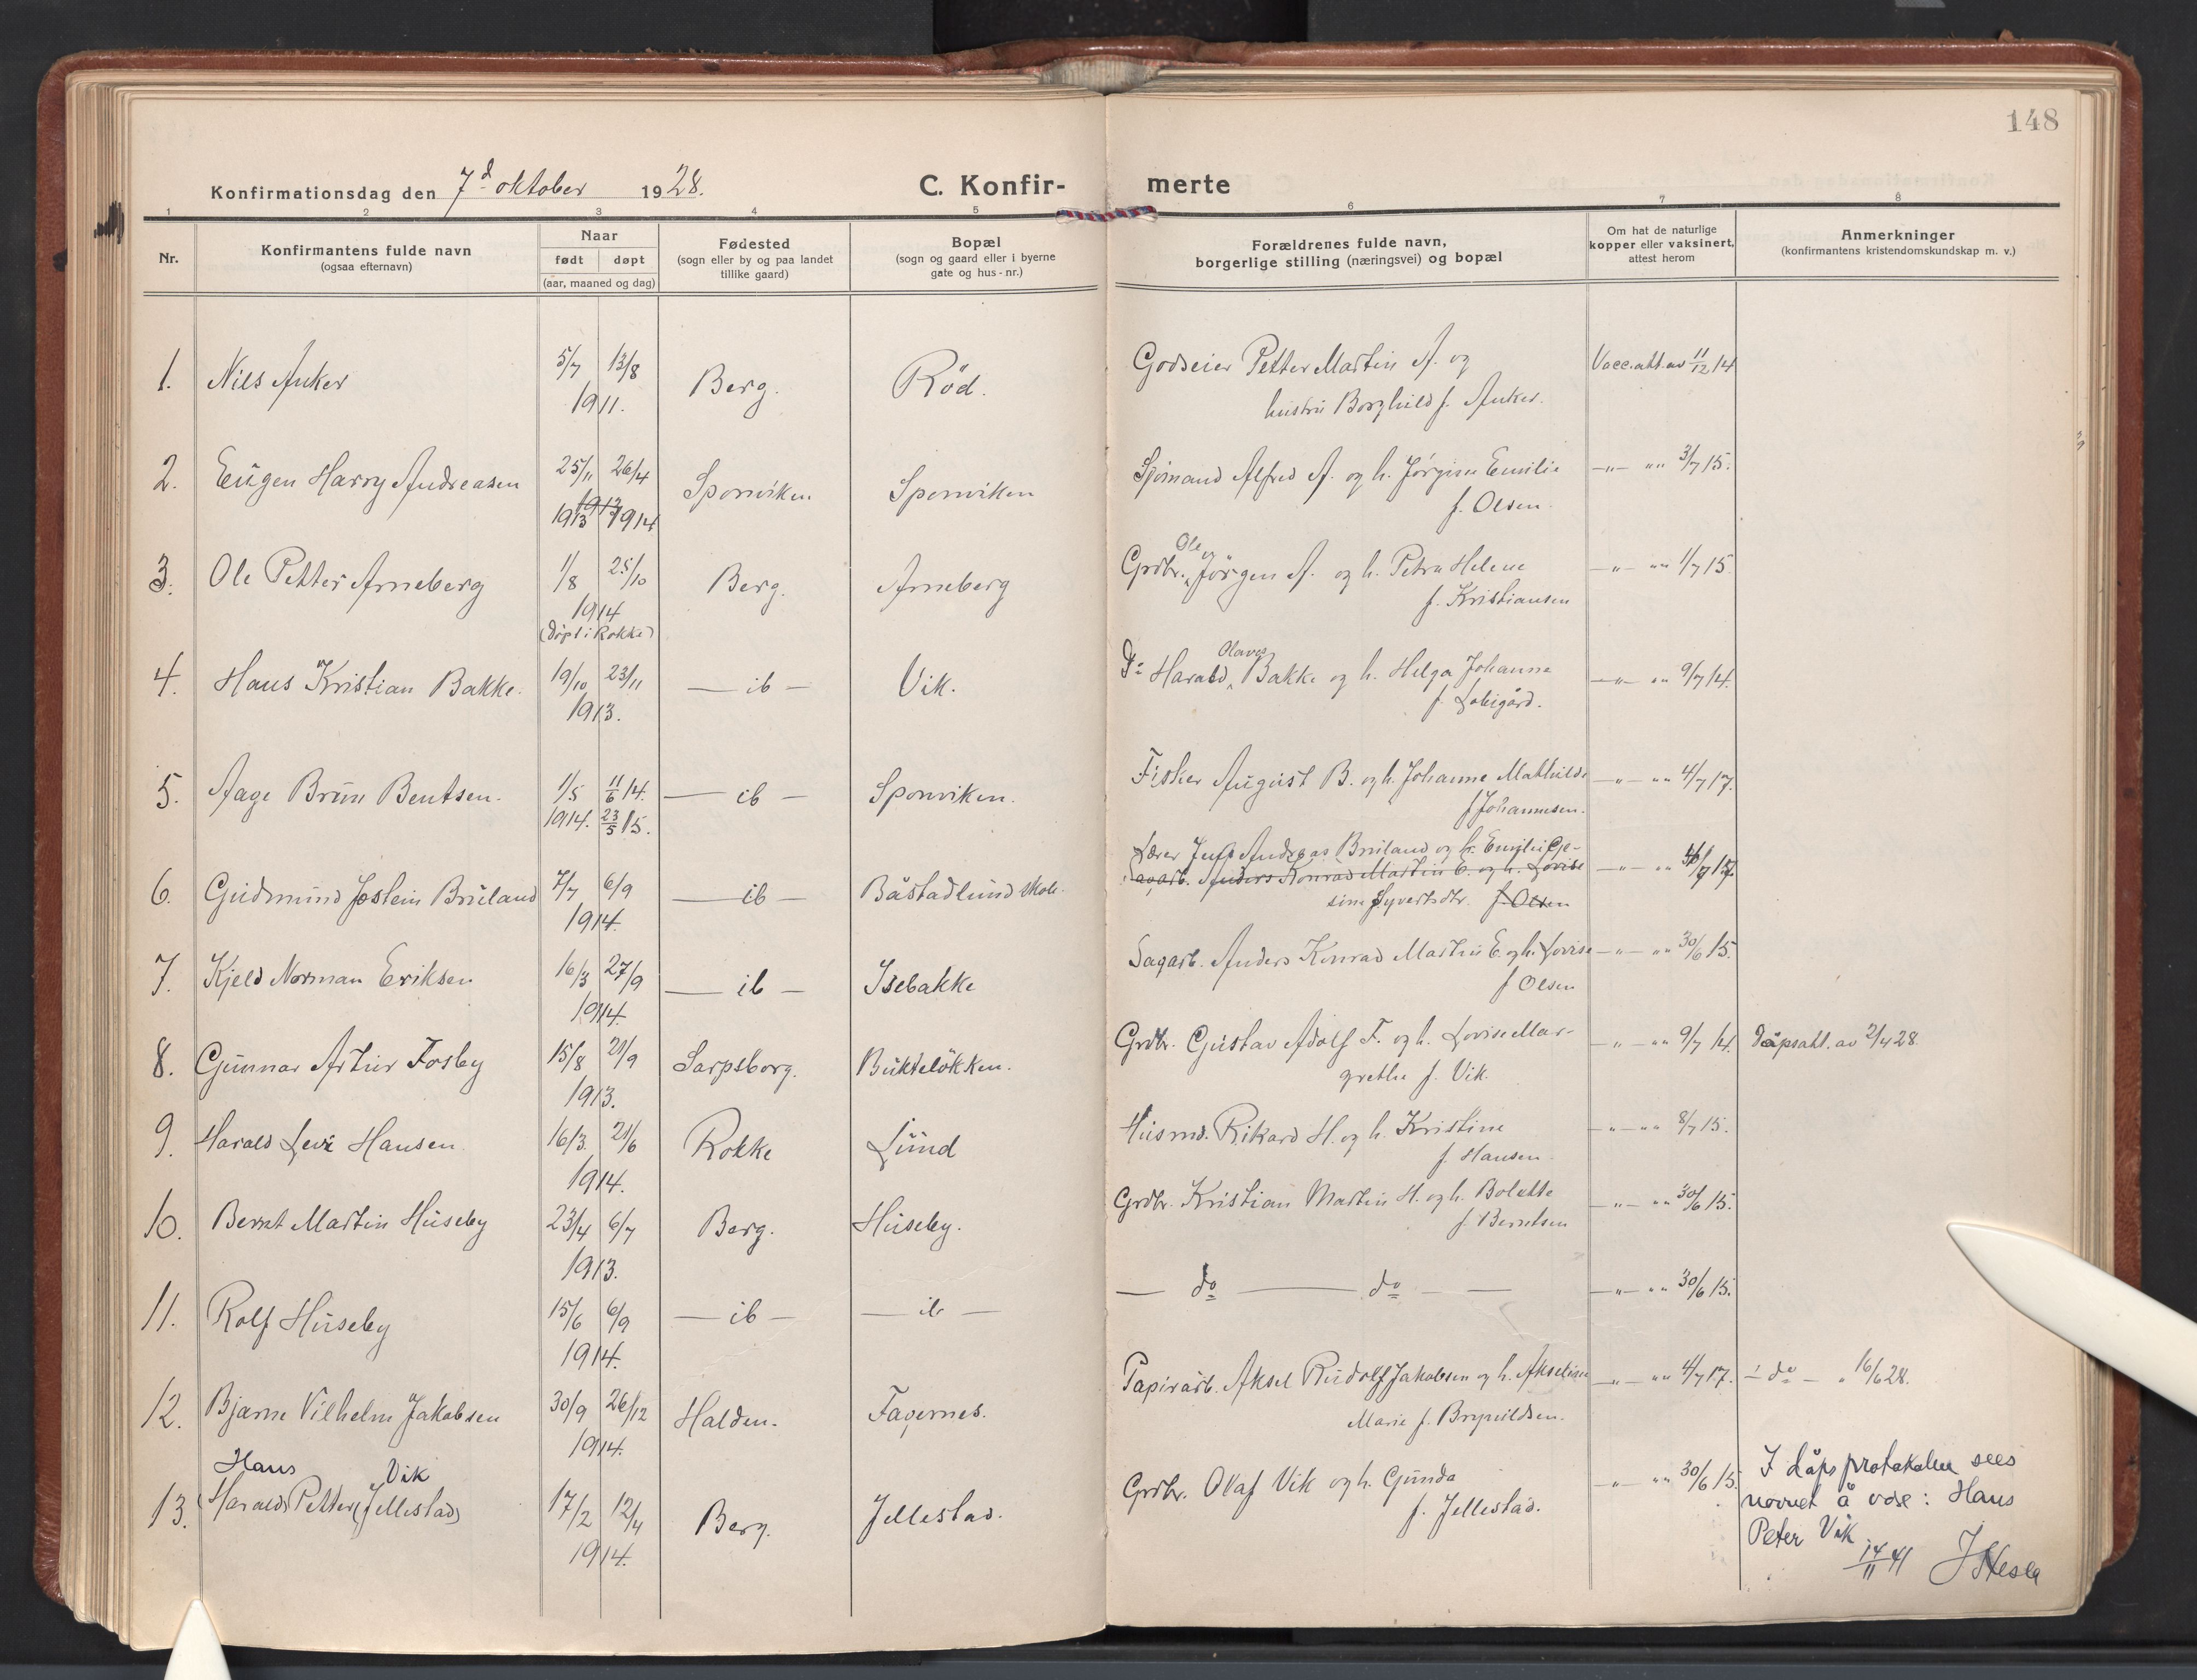 148
Konfirmationsdag den 7d oktober 1928.
C. Konfir- merte
1 2 3 4 5 6 7 8
Nr.
Konfirmantens fulde navn
(ogsaa efternavn)
Naar
født døpt
(aar, maaned og dag)
Fødested
(sogn eller by og paa landet
tillike gaard)
Bopæl
(sogn og gaard eller i byerne
gate og hus-nr.)
Forældrenes fulde navn,
borgerlige stilling (næringsvei) og bopæl
Om hat de naturlige
kopper eller vaksinert,
attest herom
Anmerkninger
(konfirmantens kristendomskundskap m. v.)
1. Nils Anker 5/7 13/8 Berg. Röd. Godseier Petter Martin A. og Vacc.att. av 11/12 14
1911. hustru Borghild f. Anker.
2. Eugen Harry Andreasen 25/11 26/4 Sponviken Sponviken Sjömand Alfred A. og h. Jörgine Emilie —"— "" 3/7 15.
1913 1914 f. Olsen.
3. Ole Petter Arneberg 1/8 25/10 Berg. Arneberg Grdbr. Ole og Jörgen A. og h. Petra Helene —"— "" 1/7 15.
1914 f. Kristiansen
(döpt i Rokke)
4. Hans Kristian Bakke. 19/10 23/11 — ib — Vik. Do Harald Olaves Bakke og h. Helga Johanne —"— "" 9/7 14.
1913. f.
5. Aage Brun Bentsen. 1/5 11/6 14. — ib — Sponviken. Fisker August B. og h. Johanne Mathilde —"— "" 4/7 17.
1914. 23/5 15. f. Johannesen.
Lærer Andreas Bruland og h. Emilie Ge-
6. Gudmund Jostein Bruland 7/7 6/9 — ib — Båstadlund skole. Anders Konrad Martin E. og h. Lovise —"— ""
1914. sine Syvertsdtr. f. Olsen
7. Kjeld Norman Eriksen 16/3 27/9 — ib — Isebakke Sagarb. Anders Konrad Martin E. og h. Lovise —"— "" 30/6 15.
1914. f Olsen
8. Gunnar Artur Fosby 15/8 21/9 Sarpsborg. Bukteløkken. Grdbr. Gustav Adolf F. og h. Lovise Mar- —"— "" 9/7 14. Dåpsatt. av 2/4 28.
1913. grethe f. Vik.
9. Harald Levi Hansen. 16/3 21/6 Rokke Lund Husmd. Rikard H. og h. Kristine —"— "" 8/7 15.
1914. f. Hansen
10. Bernt Martin Huseby 23/4 6/7 Berg. Huseby. Grdbr. Kristian Martin H. og h. Bolette —"— "" 30/6 15.
1913. f. Berntsen
11. Rolf Huseby 15/6 6/9 — ib — — ib — — do — do — —"— "" 30/6 15.
1914.
12. Bjarne Vilhelm Jakobsen 30/9 26/12 Halden. Fagernes. Papirarb. Aksel Rudolf Jakobsen og h. Akseline —"— "" 4/7 17. — do — " 16/6 28.
1914. Marie f. Brynildsen.
Hans Vik
13. (Harald) Petter (Jellestad) 17/2 12/4 Berg. Jellestad. Grdbr. Olaf Vik og h. Gunda —"— "" 30/6 15.
1914. f. Jellestad.
I dåpsprotokolen sees
nevnet å være: Hans
Peter Vik
14/11 41